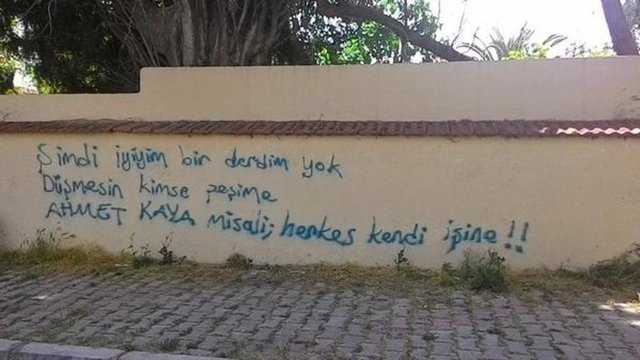 Şimdi iyiyim bir derdim yok
Düşmesin kimse peşime
AHMET KAYA misali; herkes kendi işine!!